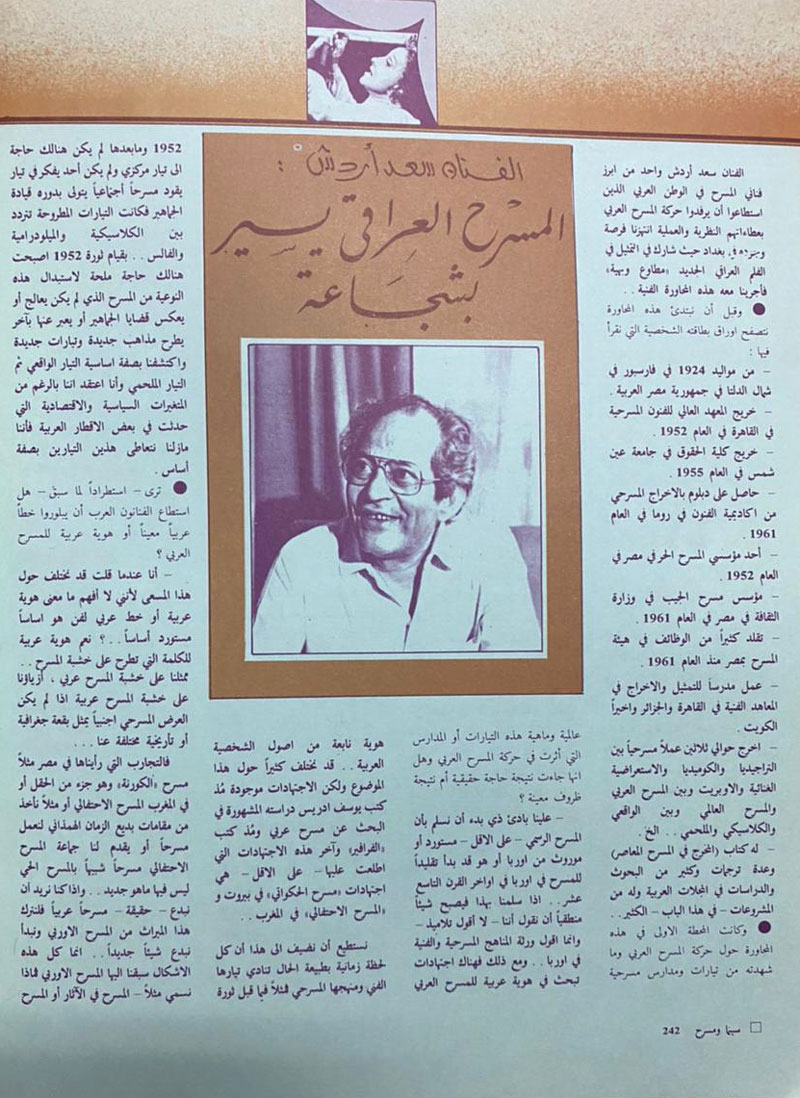 الفنان سعد أردش :
المسرح العراقي يسير
بشجاعة
الفنان سعد أردش واحد من ابرز
فناني المسرح في الوطن العربي الذين
استطاعوا أن يرفدوا حركة المسرح العربي
بعطاءاتهم النظرية والعملية انتهزنا فرصة
وجوده في بغداد حيث شارك في التمثيل في
الفلم العراقي الجديد «مطاوع وبهية»
فأجرينا معه هذه المحاورة الفنية . .
● وقبل أن نبتدئ هذه المحاورة
نتصفح اوراق بطاقته الشخصية التي نقرأ
فيها :
– من مواليد 1924 في فارسبور في
شمال الدلتا في جمهورية مصر العربية .
– خريج المعهد العالي للفنون المسرحية
في القاهرة في العام 1952 .
– خريج كلية الحقوق في جامعة عين
شمس في العام 1955 .
– حاصل على دبلوم بالاخراج المسرحي
من اكاديمية الفنون في روما في العام
1961 .
– أحد مؤسسي المسرح الحر في مصر في
العام 1952 .
– مؤسس مسرح الجيب في وزارة
الثقافة في مصر في العام 1961 .
– تقلد كثيراً من الوظائف في هيئة
المسرح بمصر منذ العام 1961 .
– عمل مدرساً للتمثيل والاخراج في
المعاهد الفنية في القاهرة والجزائر واخيراً
الكويت .
– اخرج حوالي ثلاثين عملاً مسرحياً بين
التراجيديا والكوميديا والاستعراضية
الغنائية والاوبريت وبين المسرح العربي
والمسرح العالمي وبين الواقعي
والكلاسيكي والملحمي . . الخ .
– له كتاب (المخرج في المسرح المعاصر)
وعدة ترجمات وكثير من البحوث
والدراسات في المجلات العربية وله من
المشروعات – في هذا الباب – الكثير . .
● وكانت المحطة الاولى في هذه
المحاورة حول حركة المسرح العربي وما
شهدته من تيارات ومدارس مسرحية
عالمية وماهية هذه التيارات أو المدارس
التي أثرت في حركة المسرح العربي وهل
انها جاءت نتيجة حاجة حقيقية أم نتيجة
ظروف معينة ؟
– علينا بادئ ذي بدء أن نسلم بأن
المسرح الرسمي – على الاقل – مستورد أو
موروث من اوربا أو هو قد بدأ تقليداً
للمسرح في اوربا في اواخر القرن التاسع
عشر . . اذا سلمنا بهذا فيصبح شيئاً
منطقياً أن نقول أننا – لا أقول تلاميذ –
وانما اقول ورثة المناهج المسرحية والفنية
في اوربا . . ومع ذلك فهناك اجتهادات
تبحث في هوية عربية للمسرح العربي
هوية نابعة من اصول الشخصية
العربية . . قد نختلف كثيراً حول هذا
الموضوع ولكن الاجتهادات موجودة مُذ
كتب يوسف ادريس دراسته المشهورة في
البحث عن مسرح عربي ومُذ كتب
«الفرافير» وآخر هذه الاجتهادات التي
اطلعت عليها – على الاقل – هي
اجتهادات «مسرح الحكواتي» في بيروت و
«المسرح الاحتفالي» في المغرب . .
نستطيع أن نضيف الى هذا أن كل
لحظة زمانية بطبيعة الحال تنادي تيارها
الفني ومنهجها المسرحي فمثلاً فيما قبل ثورة
1952 ومابعدها لم يكن هنالك حاجة
الى تيار مركزي ولم يكن أحد يفكر في تيار
يقود مسرحاً أجتماعياً يتولى بدوره قيادة
الجماهير فكانت التيارات المطروحة تتردد
بين الكلاسيكية والميلودرامية
والفالس . . بقيام ثورة 1952 اصبحت
هنالك حاجة ملحة لاستبدال هذه
النوعية من المسرح الذي لم يكن يعالج أو
يعكس قضايا الجماهير أو يعبر عنها بآخر
يطرح مذاهب جديدة وتيارات جديدة
واكتشفنا بصفة اساسية التيار الواقعي ثم
التيار الملحمي وأنا اعتقد اننا بالرغم من
المتغيرات السياسية والاقتصادية التي
حدثت في بعض الاقطار العربية فأننا
مازلنا نتعاطى هذين التيارين بصفة
أساس .
● ترى – استطراداً لما سبق – هل
استطاع الفنانون العرب أن يبلوروا خطاً
عربياً معيناً أو هوية عربية للمسرح
العربي ؟
– أنا عندما قلت قد نختلف حول
هذا المسعى لأنني لا أفهم ما معنى هوية
عربية أو خط عربي لفن هو اساساً
مستورد أساساً . . ؟ نعم هوية عربية
للكلمة التي تطرح على خشبة المسرح . .
ممثلنا على خشبة المسرح عربي ، أزياؤنا
على خشبة المسرح عربية اذا لم يكن
العرض المسرحي اجنبياً يمثل بقعة جغرافية
أو تأريخية مختلفة عنا . . .
فالتجارب التي رأيناها في مصر مثلاً
مسرح «الكورنة» وهو جزء من الحقل أو
في المغرب المسرح الاحتفالي أو مثلاً نأخذ
من مقامات بديع الزمان الهمذاني لنعمل
مسرحاً أو يقدم لنا جماعة المسرح
الاحتفالي مسرحاً شبيهاً بالمسرح الحي
ليس فيها ماهو جديد . . واذا كنا نريد أن
نبدع – حقيقة – مسرحاً عربياً فلنترك
هذا الميراث من المسرح الاوربي ونبدأ
نبدع شيئاً جديداً . . انما كل هذه
الاشكال سبقنا اليها المسرح الاوربي فماذا
نسمي مثلاً – المسرح في الآثار أو المسرح
□ سينما ومسرح 242